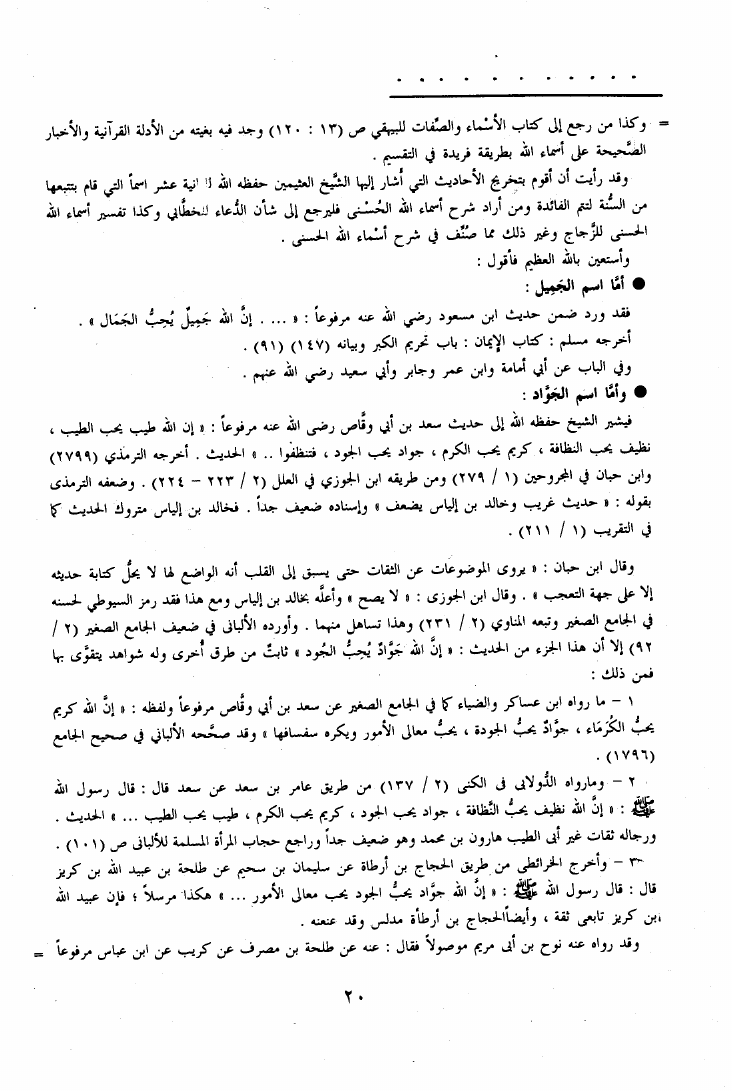 = وكذا من رجع إلى كتاب الأسْماء والصِّفات للبيهقي ص (١٣ : ١٢٠) وجد فيه بغيته من الأدلة القرآنية والأخبار
الصَّحيحة على أسماء الله بطريقة فريدة في التقسيم .
وقد رأيت أن أقوم بتخريج الأحاديث التي أشار إليها الشَّيخ العثيمين حفظه الله انية عشر اسماً التي قام بتتبعها
من السُّنة لتتم الفائدة ومن أراد شرح أسماء الله الحُسْنى فليرجع إلى شأن الدُّعاء للخطَّابي وكذا تفسير أسماء الله
الحسنى للزَّجاج وغير ذلك مما صُنِّف في شرح أسْماء الله الحسنى .
وأستعين بالله العظيم فأقول :
● أمَّا اسم الجَمِيل :
فقد ورد ضمن حديث ابن مسعود رضي الله عنه مرفوعاً : « .... إنَّ الله جَمِيلٌ يُحِبُّ الجَمَال » .
أخرجه مسلم : كتاب الإيمان : باب تحريم الكبر وبيانه (١٤٧) (٩١) .
وفي الباب عن أبي أمامة وابن عمر وجابر وأبي سعيد رضي الله عنهم .
● وأمَّا اسم الجَوَّاد :
فيشير الشيخ حفظه الله إلى حديث سعد بن أبي وقَّاص رضى الله عنه مرفوعاً : « إن الله طيب يحب الطيب ،
نظيف يحب النظافة ، كريم يحب الكرم ، جواد يحب الجود ، فتنظفوا .. » الحديث . أخرجه الترمذي (٢٧٩٩)
وابن حبان في المجروحين (١ / ٢٧٩) ومن طريقه ابن الجوزي في العلل (٢ / ٢٢٣ – ٢٢٤) . وضعفه الترمذى
بقوله : « حديث غريب وخالد بن إلياس يضعف » وإسناده ضعيف جداً . فخالد بن إلياس متروك الحديث كما
في التقريب (١ / ٢١١) .
وقال ابن حبان : « يروى الموضوعات عن الثقات حتى يسبق إلى القلب أنه الواضع لها لا يحلُّ كتابة حديثه
إلا على جهة التعجب » . وقال ابن الجوزى : « لا يصح » وأعلَّه بخالد بن إلياس ومع هذا فقد رمز السيوطي لحسنه
في الجامع الصغير وتبعه المناوي (٢ / ٢٣١) وهذا تساهل منهما . وأورده الألبانى في ضعيف الجامع الصغير (٢ /
٩٢) إلا أن هذا الجزء من الحديث : « إنَّ الله جَوَّادٌ يُحِبُّ الجُود » ثابتٌ من طرق أخرى وله شواهد يتقوَّى بها
فمن ذلك :
١ – ما رواه ابن عساكر والضياء كما في الجامع الصغير عن سعد بن أبي وقَّاص مرفوعاً ولفظه : « إنَّ الله كريم
يحبُّ الكُرَمَاء ، جوَّادٌ يحبُّ الجودة ، يحبُّ معالى الأمور ويكره سفسافها » وقد صحَّحه الألباني في صحيح الجامع
(١٧٩٦) .
٢ – ومارواه الدُّولابى فى الكنى (٢ / ١٣٧) من طريق عامر بن سعد عن سعد قال : قال رسول الله
ﷺ : « إنَّ الله نظيف يحبُّ النَّظافة ، جواد يحب الجود ، كريم يحب الكرم ، طيب يحب الطيب ... » الحديث .
ورجاله ثقات غير أبى الطيب هارون بن محمد وهو ضعيف جداً وراجع حجاب المرأة المسلمة للألبانى ص (١٠١) .
٣ – وأخرج الخرائطى من طريق الحجاج بن أرطاة عن سليمان بن سحيم عن طلحة بن عبيد الله بن كريز
قال : قال رسول الله ﷺ : « إنَّ الله جوَّاد يحبُّ الجود يحب معالى الأمور ... » هكذا مرسلاً ؛ فإن عبيد الله
ابن كريز تابعى ثقة ، وأيضاًالحجاج بن أرطأة مدلس وقد عنعنه .
وقد رواه عنه نوح بن أبى مريم موصولاً فقال : عنه عن طلحة بن مصرف عن كريب عن ابن عباس مرفوعاً =
٢٠